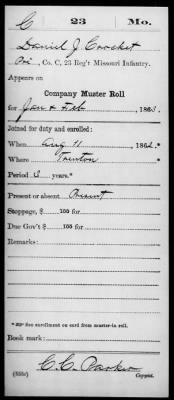 C 23 Mo.
Daniel J. Crocket
Pvt, Co. C, 23 Reg't Missouri Infantry.
Appears on
Company Muster Roll
for Jan & Feb, 1863.
Joined for duty and enrolled:
When Aug 11, 1862.*
Where Trenton
Period 3 years.*
Present or absent Present
Stoppage, $ 100 for
Due Gov't $ 100 for
Remarks:
* See enrollment on card from muster-in roll.
Book mark:
C. C. Barker
Copyist.